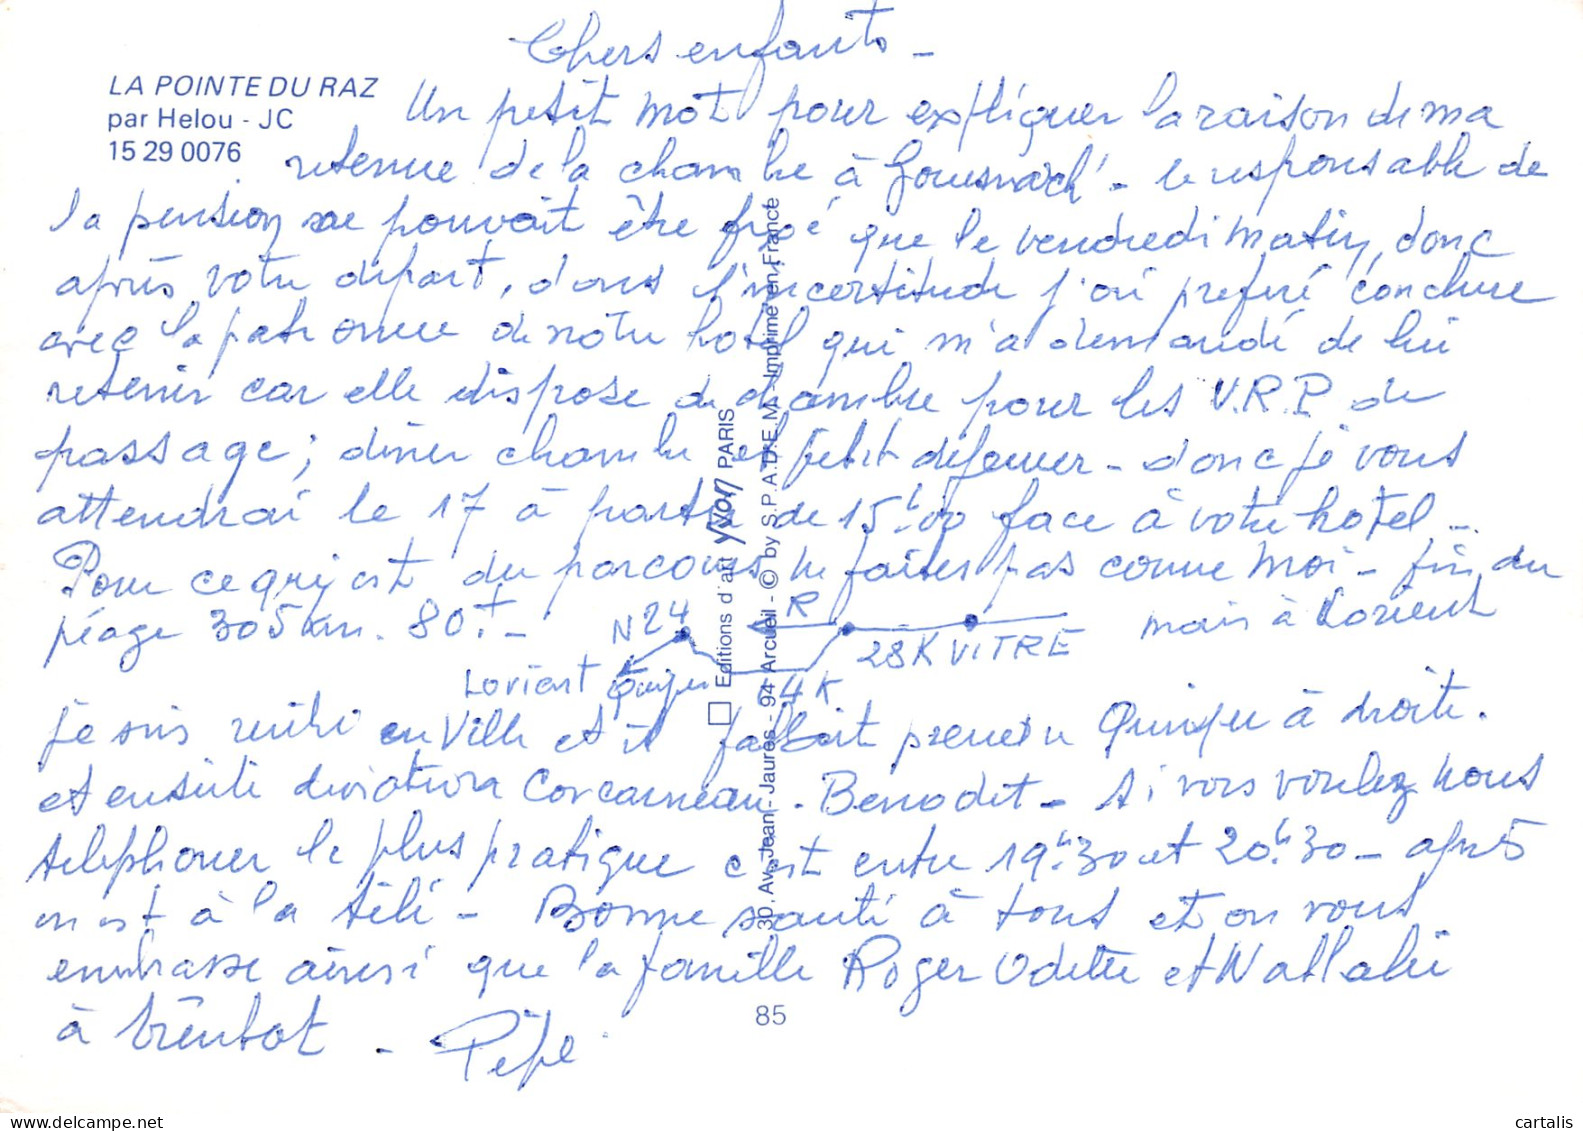 Chers enfants -
LA POINTE DU RAZ
par Helou - JC
15 29 0076
Un petit mot pour expliquer la raison de ma
retenue de la chambre à Gouesnach - le responsable de
la pension ne pouvait être fixé que le vendredi matin, donc
après votre départ, dans l'incertitude j'ai preferé conclure
avec la patronne de notre hotel qui m'a demandé de lui
retenir car elle dispose de chambre pour les V.R.P. de
passage ; diner chambre et petit déjeuner - donc je vous
attendrai le 17 à partir de 15h00 face à votre hotel -
Pour ce qui est du parcours ne faites pas comme moi - fin du
péage 305 km. 80F -
N24 R 28K VITRE
mais à Lorient
Lorient Quimper 4K
je suis rentré en Ville et il fallait prendre Quimper à droite.
et ensuite déviation Concarneau - Benodet - Si vous voulez nous
telephoner le plus pratique c'est entre 19h30 et 20h30 - après
on est à la télé - Bonne santé à tous et on vous
embrasse ainsi que la famille Roger Odette et Nathalie
à bientot - Pépé
Editions d'art YVON PARIS
30, Av. Jean-Jaurès - 94 Arcueil - © by S.P.A.D.E.M. - Imprimé en France
85
cartalis
www.delcampe.net